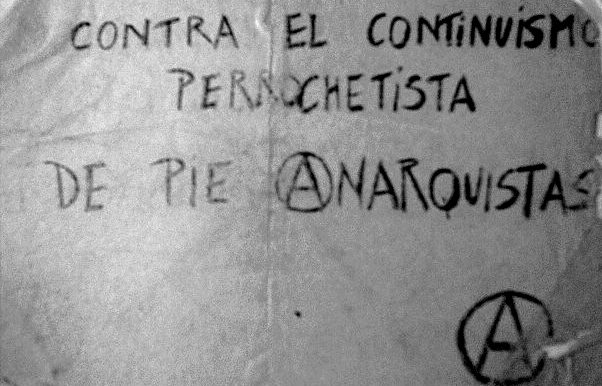 CONTRA EL CONTINUISMO
PERROCHETISTA
DE PIE ANARQUISTAS
A